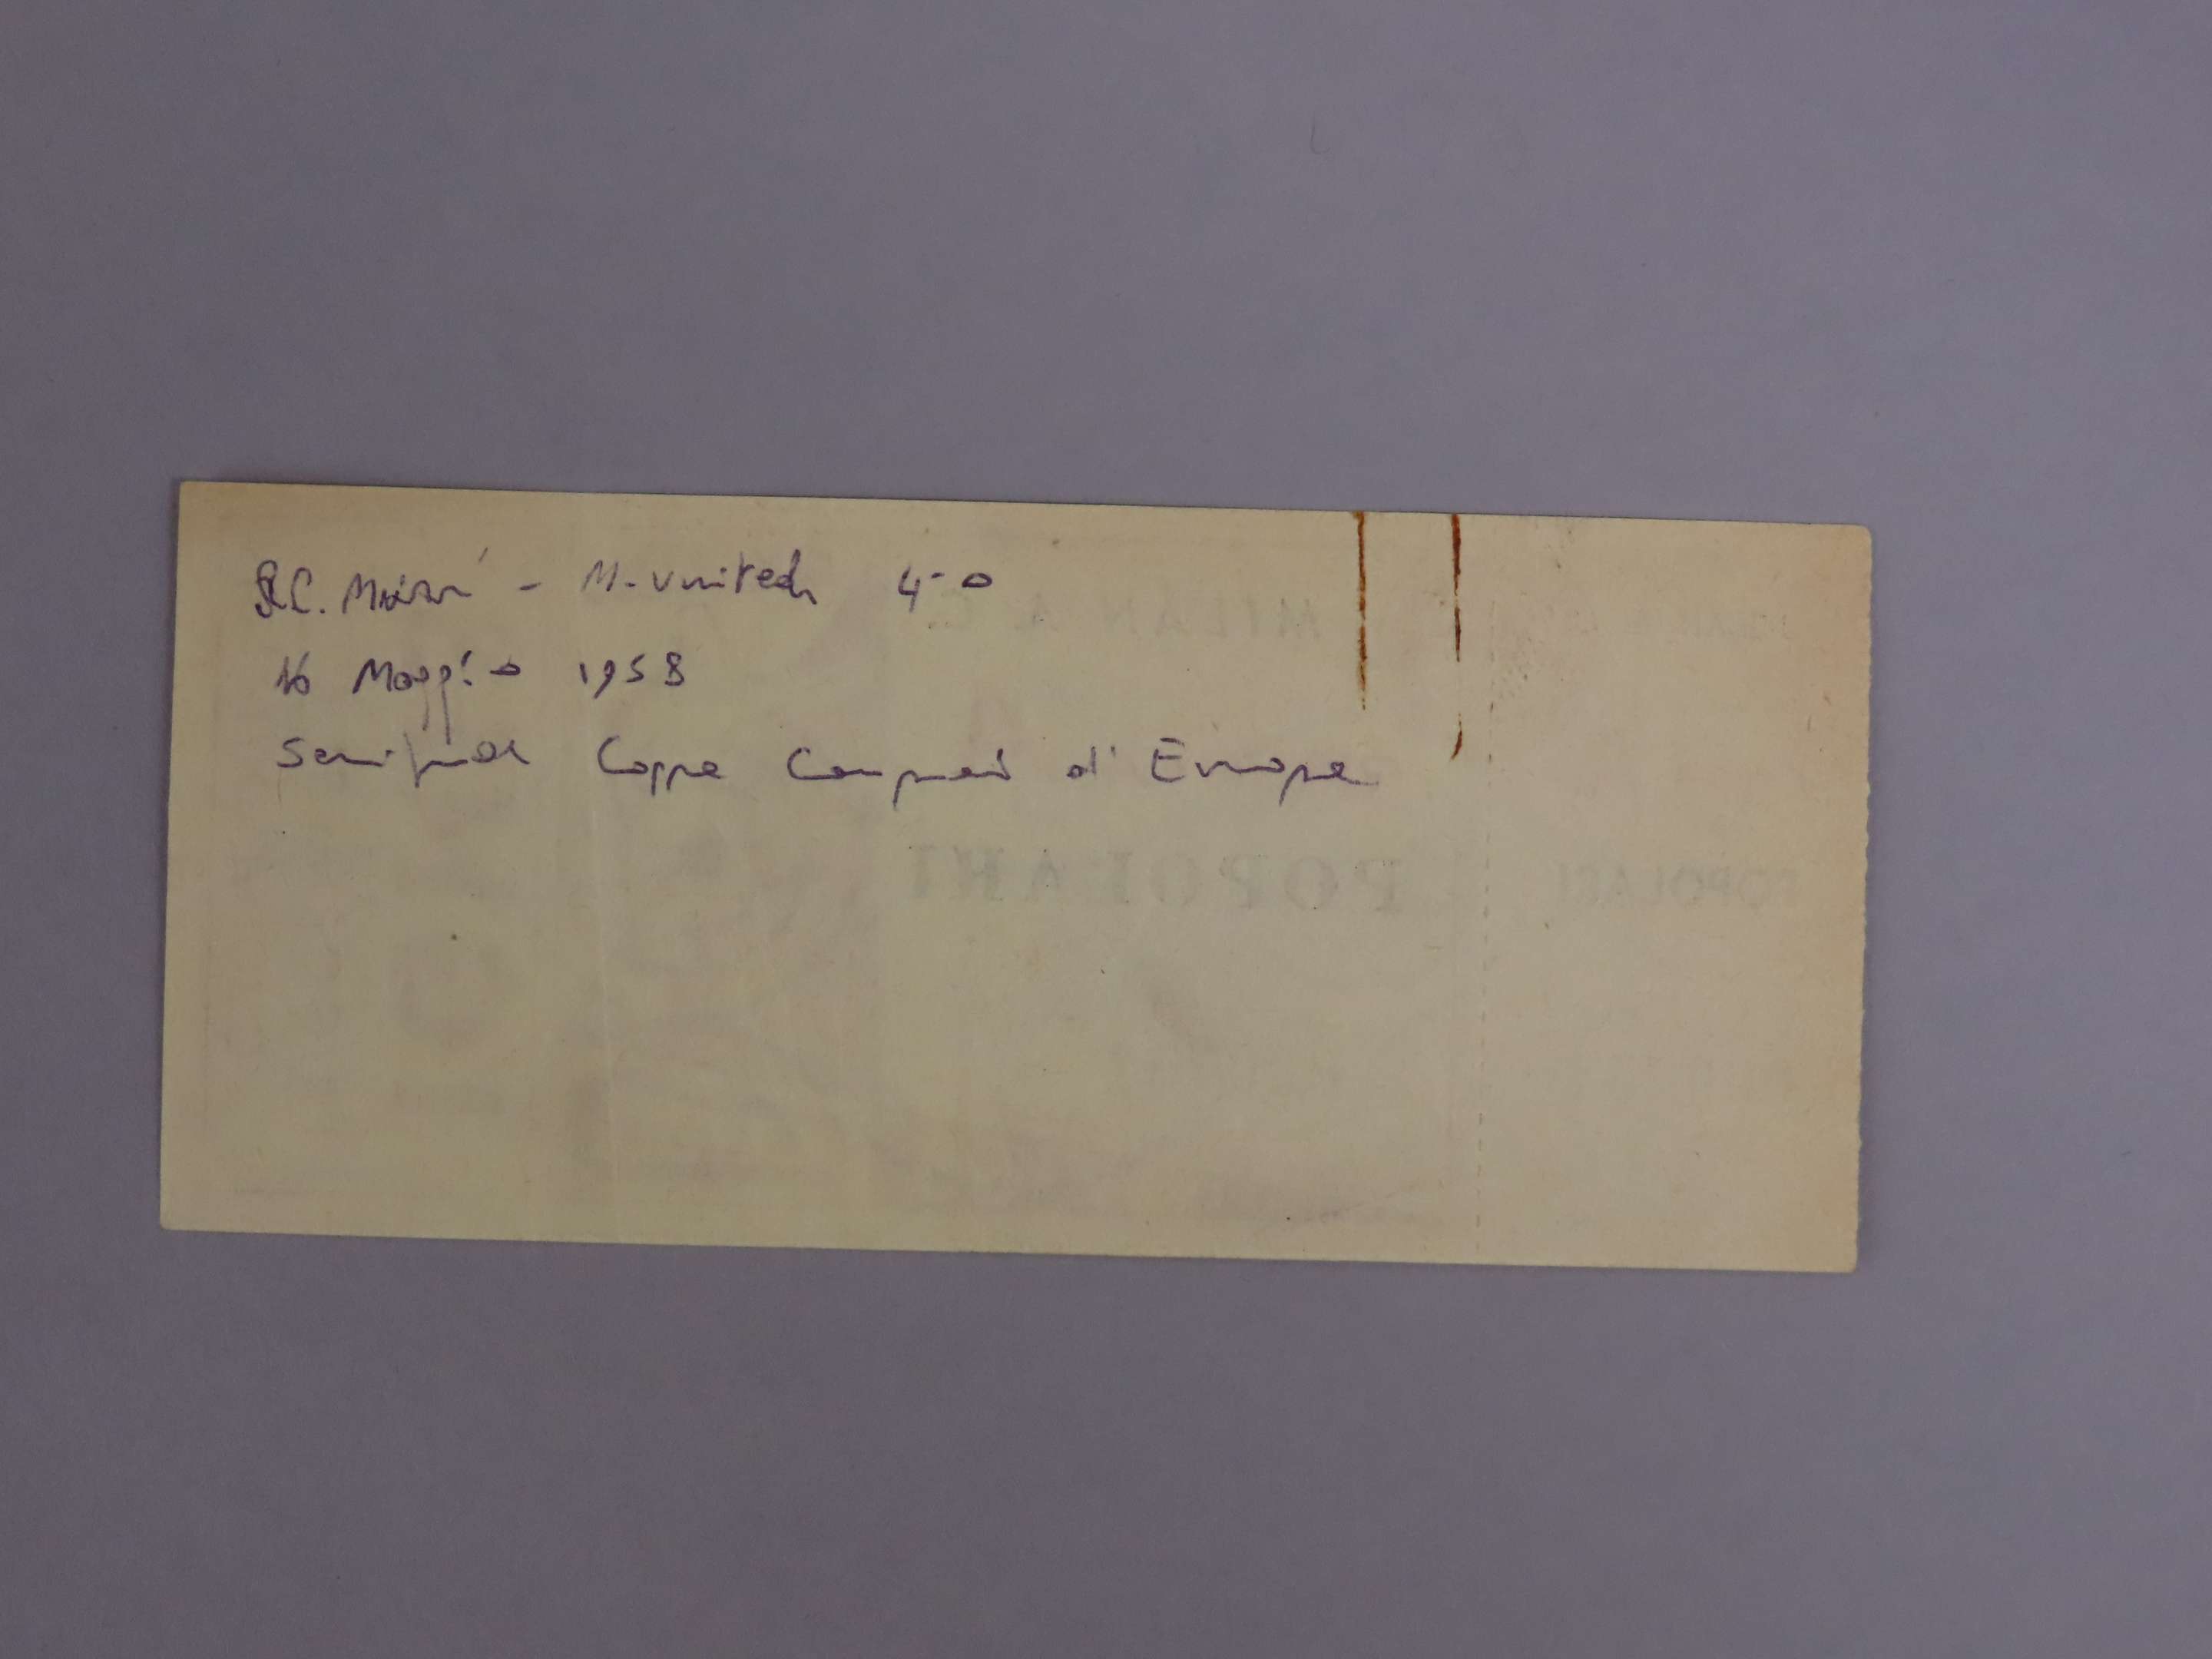 A.C. Milan - M. United 4-0
16 Maggio 1958
Semifinale Coppa Campioni d'Europa
MILAN A. C.
POPOLARI
POPOLARI